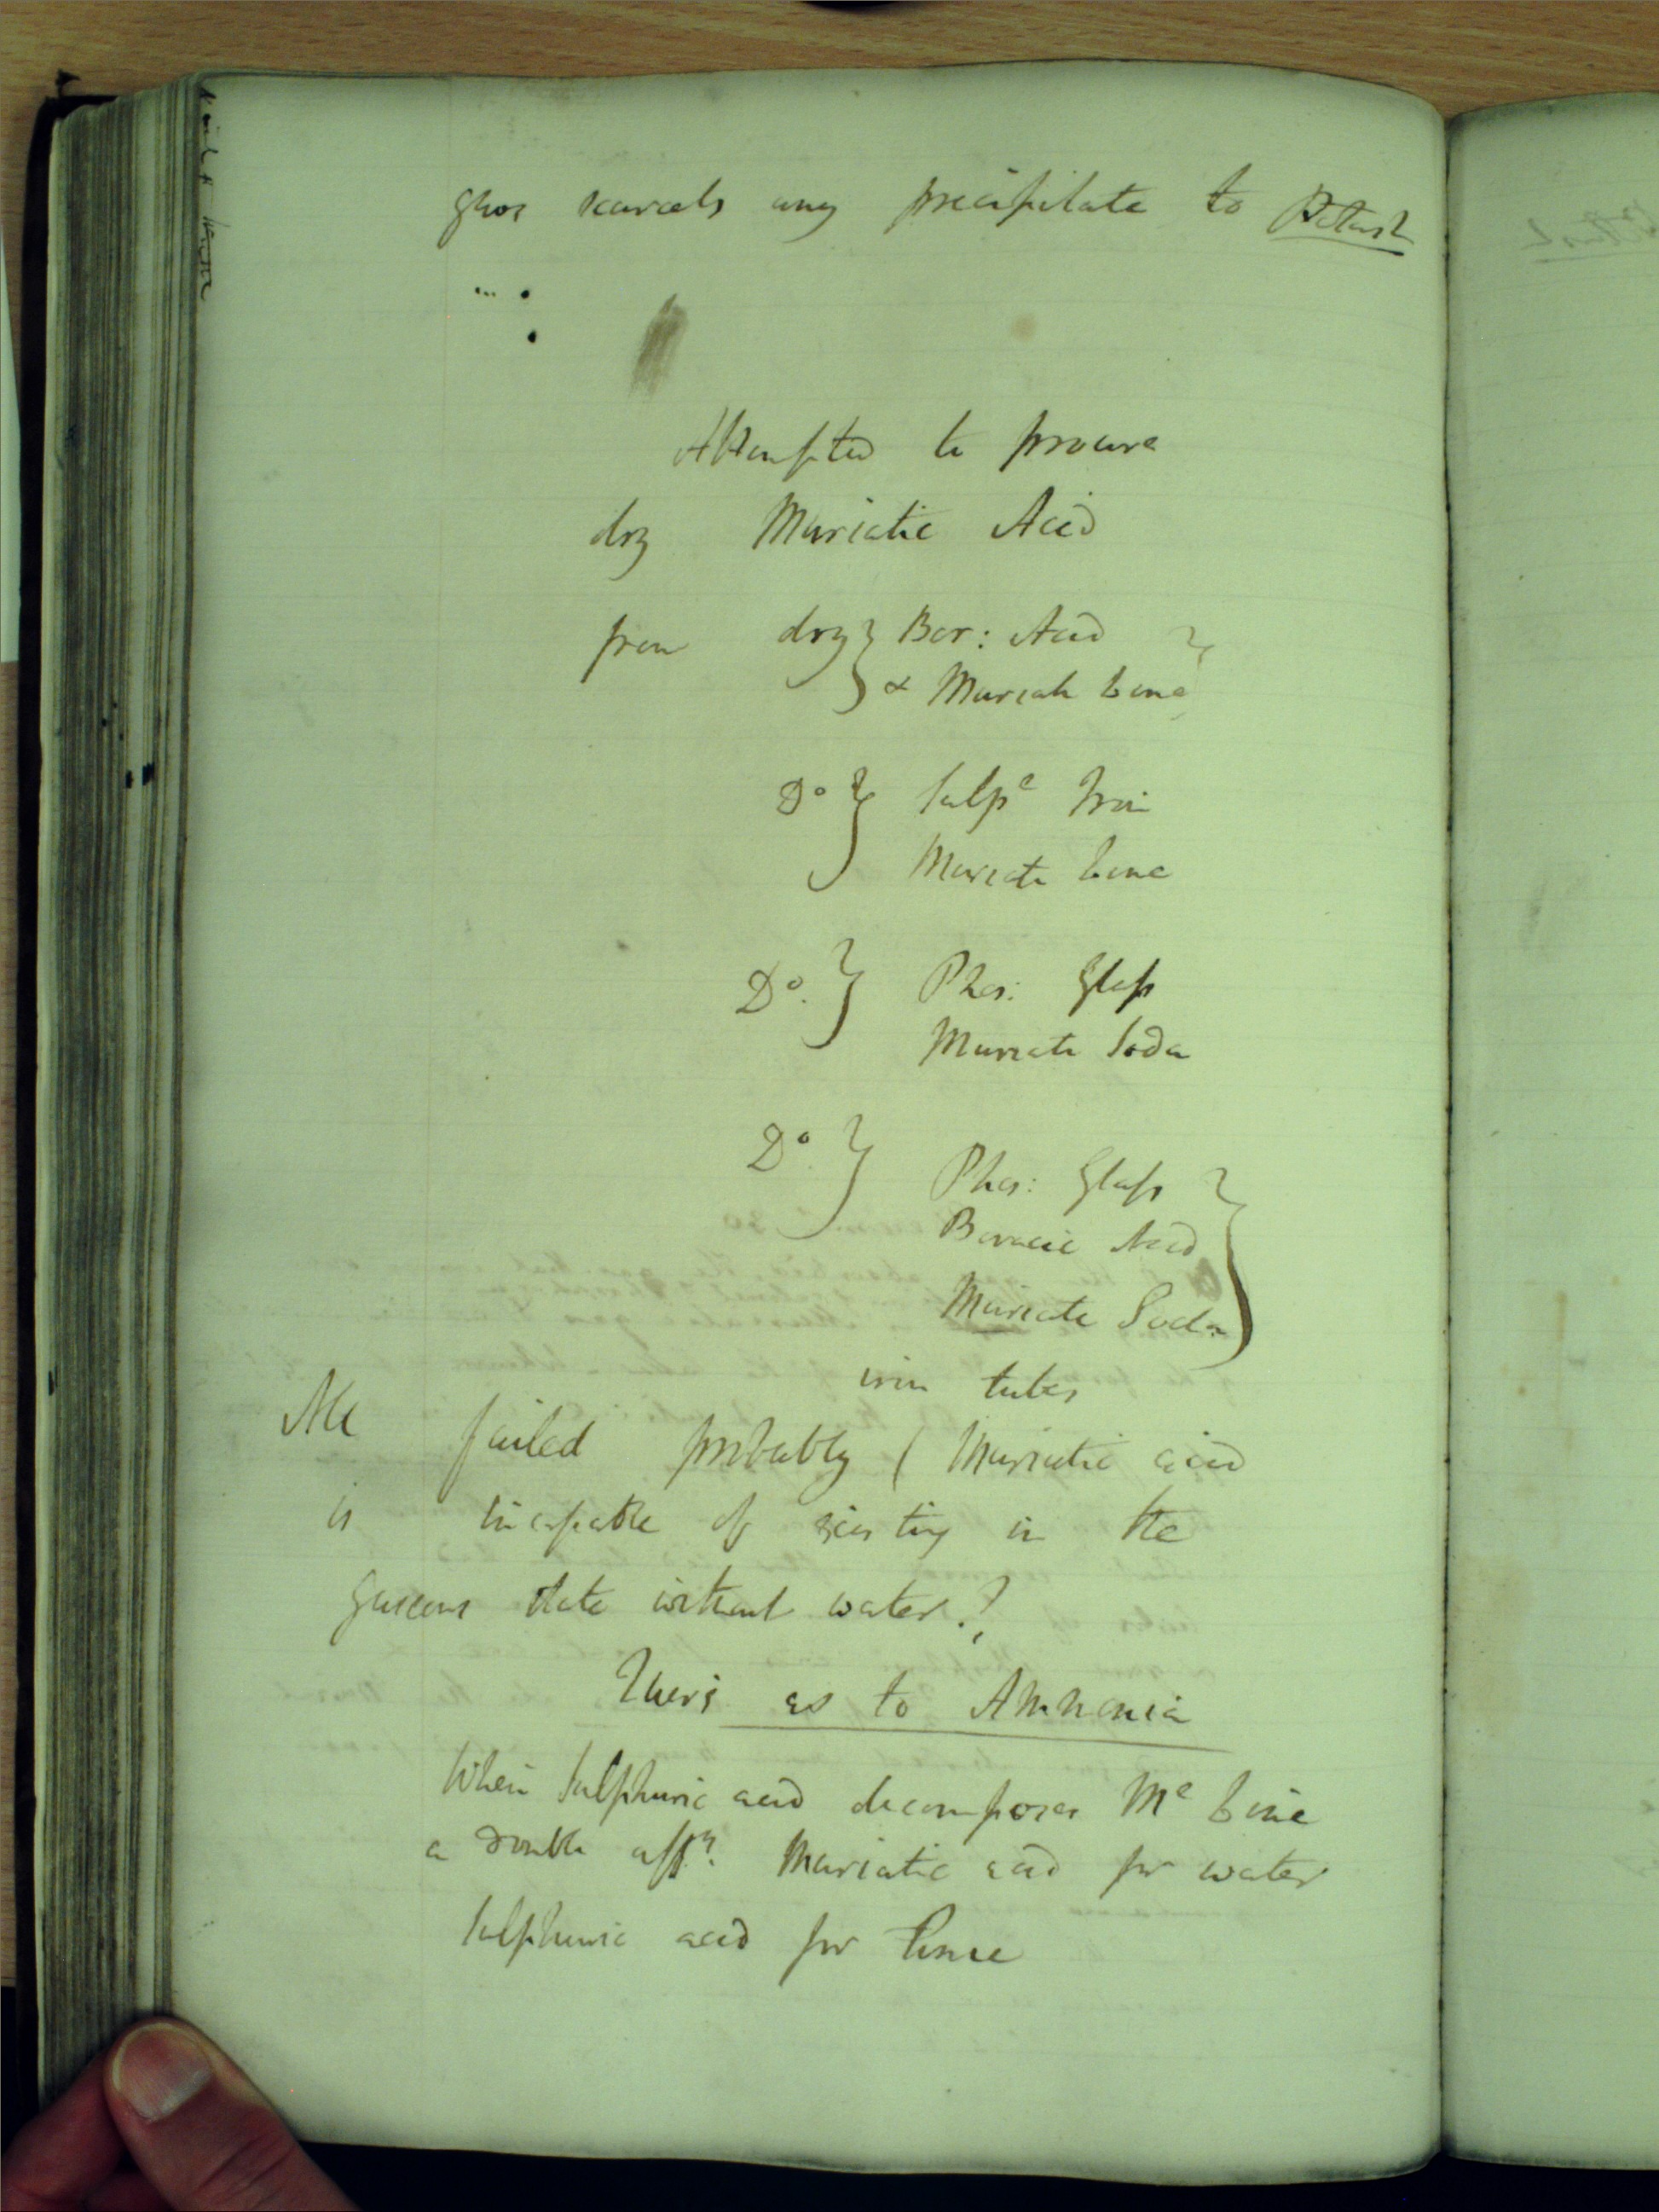 gives scarcely any precipitate to Potash
Attempted to procure
dry Muriatic Acid
from dry } Bor: Acid }
& Muriate Lime
Do } Sulpe Iron
Muriate Lime
Do. } Phos: Glass
Muriate Soda
Do. } Phos: Glass }
Boracic Acid
Muriate Soda
iron tubes
All failed probably ( Muriatic acid
is incapable of existing in the
gaseous state without water.?
Query as to Ammonia
When Sulphuric acid decomposes Me Lime
a double affy. Muriatic acid for water
Sulphuric acid for Lime